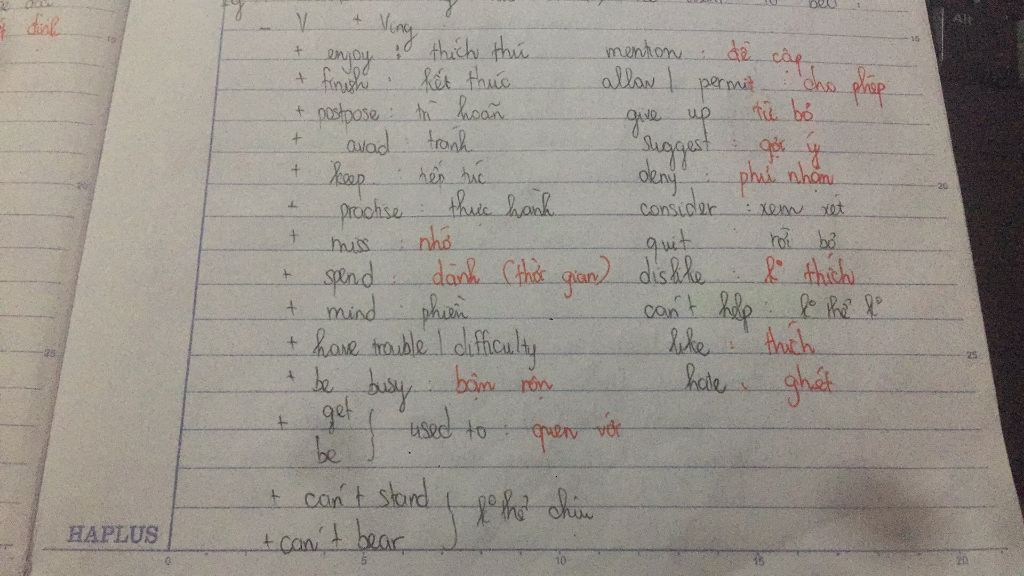 - V + Ving
+ enjoy : thích thú mention : đề cập
+ finish : kết thúc allow / permit : cho phép
+ postpose : trì hoãn give up từ bỏ
+ avoid : tránh suggest : gợi ý
+ keep : tiếp túc deny : phủ nhận
+ practise : thực hành consider : xem xét
+ miss : nhớ quit rời bỏ
+ spend : dành (thời gian) dislike : ko thích
+ mind : phiền can't help : ko thể ko
+ have trouble / difficulty like : thích
+ be busy : bận rộn hate : ghét
+ get
be } used to : quen với
+ can't stand
+ can't bear } ko thể chịu
HAPLUS